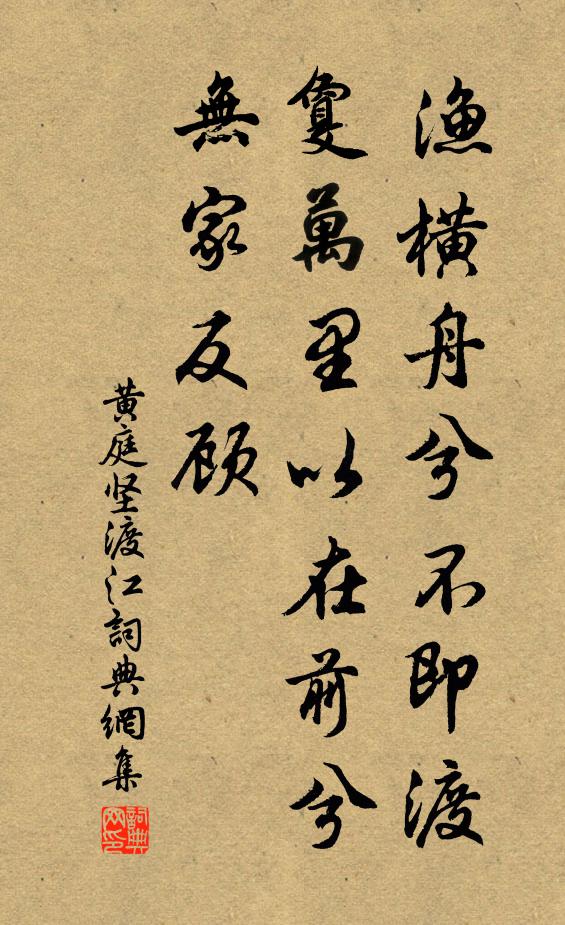 漁橫舟兮不即渡
夐萬里以在前兮
無家反顾
黄庭坚渡江詞典網集
詞典网印